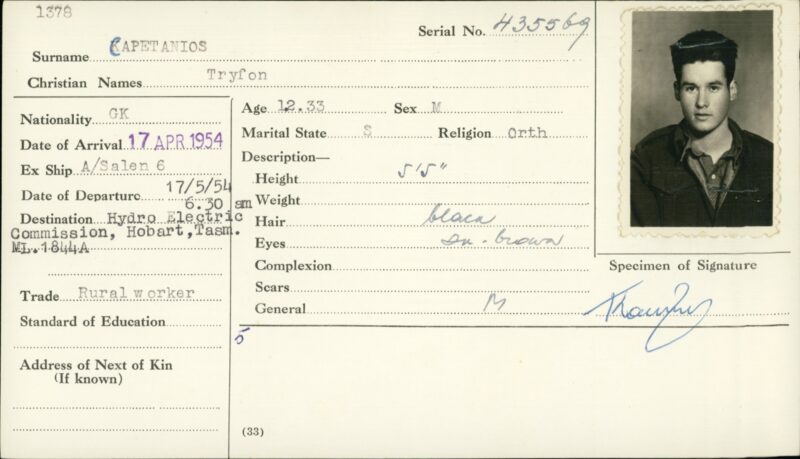 1378
Serial No. 435569
Surname KAPETANIOS
Christian Names Tryfon
Nationality GK
Date of Arrival 17 APR 1954
Ex Ship A/Salen 6
Date of Departure 17/5/54
6.30 am
Destination Hydro Electric
Commission, Hobart, Tasm.
ML.1844A
Trade Rural worker
Standard of Education
Address of Next of Kin
(If known)
Age 12.33 Sex M
Marital State S Religion Orth
Description—
Height 5'5"
Weight
Hair black
Eyes brown
Complexion
Scars
General M
5
(33)
Specimen of Signature